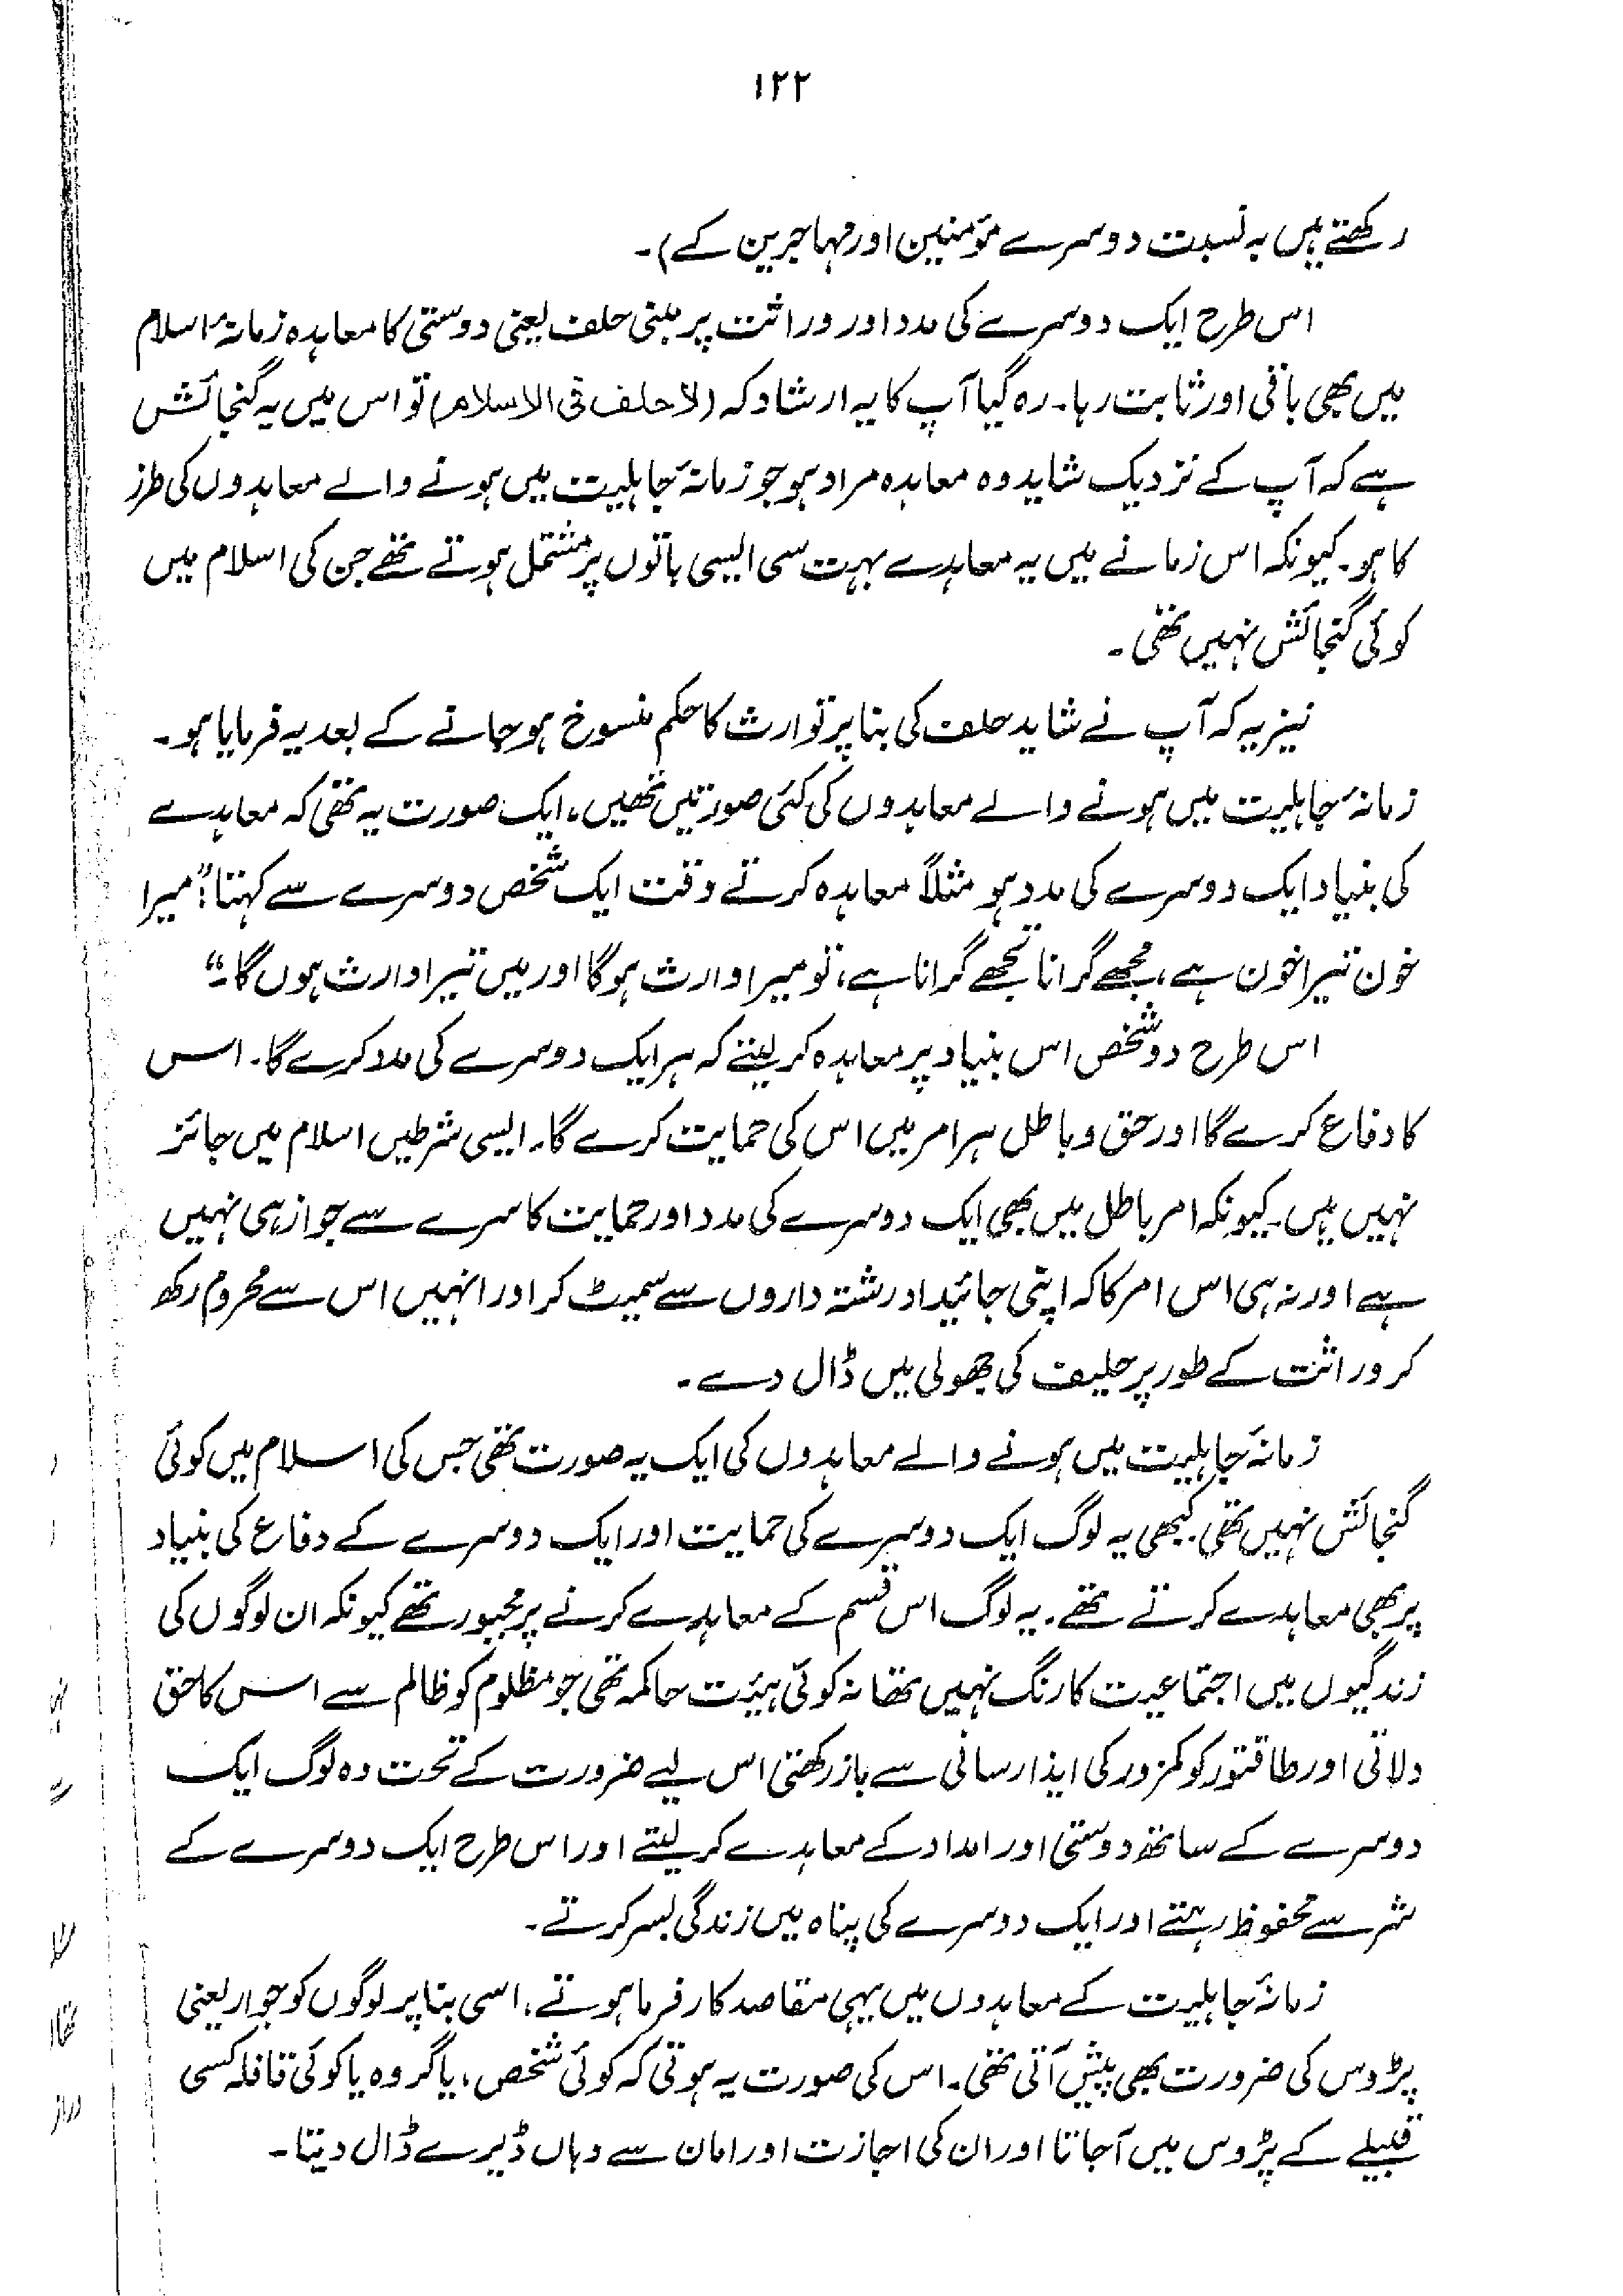 ۱۲۲
رکھتے ہیں بہ نسبت دوسرے مؤمنین اور مہاجرین کے)۔
اس طرح ایک دوسرے کی مدد اور وراثت پر مبنی حلف یعنی دوستی کا معاہدہ زمانۂ اسلام
میں بھی باقی اور ثابت رہا۔ رہ گیا آپ کا یہ ارشاد کہ (لاحلف فی الاسلام) تو اس میں یہ گنجائش
ہے کہ آپ کے نزدیک شاید وہ معاہدہ مراد ہو جو زمانۂ جاہلیت میں ہونے والے معاہدوں کی طرز
کا ہو۔ کیونکہ اس زمانے میں یہ معاہدے بہت سی ایسی باتوں پر مشتمل ہوتے تھے جن کی اسلام میں
کوئی گنجائش نہیں تھی۔
نیز یہ کہ آپ نے شاید حلف کی بنا پر توارث کا حکم منسوخ ہو جانے کے بعد یہ فرمایا ہو۔
زمانۂ جاہلیت میں ہونے والے معاہدوں کی کئی صورتیں تھیں، ایک صورت یہ تھی کہ معاہدے
کی بنیاد ایک دوسرے کی مدد ہو مثلاً معاہدہ کرتے وقت ایک شخص دوسرے سے کہتا: "میرا
خون تیرا خون ہے، مجھے گرانا تجھے گرانا ہے، تو میرا وارث ہوگا اور میں تیرا وارث ہوں گا۔"
اس طرح دو شخص اس بنیاد پر معاہدہ کر لیتے کہ ہر ایک دوسرے کی مدد کرے گا۔ اس
کا دفاع کرے گا اور حق و باطل ہر امر میں اس کی حمایت کرے گا۔ ایسی شرطیں اسلام میں جائز
نہیں ہیں۔ کیونکہ امر باطل میں بھی ایک دوسرے کی مدد اور حمایت کا سرے سے جواز ہی نہیں
ہے اور نہ ہی اس امر کا کہ اپنی جائیداد رشتہ داروں سے سمیٹ کر اور انہیں اس سے محروم رکھ
کر وراثت کے طور پر حلیف کی جھولی میں ڈال دے۔
زمانۂ جاہلیت میں ہونے والے معاہدوں کی ایک یہ صورت تھی جس کی اسلام میں کوئی
گنجائش نہیں تھی۔ کبھی یہ لوگ ایک دوسرے کی حمایت اور ایک دوسرے کے دفاع کی بنیاد
پر بھی معاہدے کرتے تھے۔ یہ لوگ اس قسم کے معاہدے کرنے پر مجبور تھے کیونکہ ان لوگوں کی
زندگیوں میں اجتماعیت کا رنگ نہیں تھا نہ کوئی ہیئت حاکمہ تھی جو مظلوم کو ظالم سے اس کا حق
دلاتی اور طاقتور کو کمزور کی ایذا رسانی سے باز رکھتی اس لیے ضرورت کے تحت وہ لوگ ایک
دوسرے کے ساتھ دوستی اور امداد کے معاہدے کر لیتے اور اس طرح ایک دوسرے کے
شر سے محفوظ رہتے اور ایک دوسرے کی پناہ میں زندگی بسر کرتے۔
زمانۂ جاہلیت کے معاہدوں میں یہی مقاصد کار فرما ہوتے، اسی بنا پر لوگوں کو جوار یعنی
پڑوس کی ضرورت بھی پیش آتی تھی۔ اس کی صورت یہ ہوتی کہ کوئی شخص، یا گروہ یا کوئی قافلہ کسی
قبیلے کے پڑوس میں آجاتا اور ان کی اجازت اور امان سے وہاں ڈیرے ڈال دیتا۔